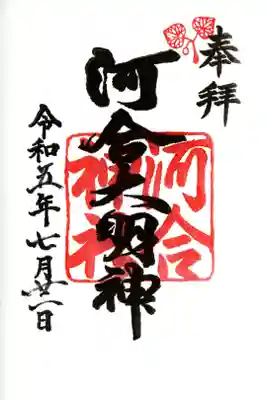 奉拝
河合大明神
河合
神社
令和五年七月廿一日